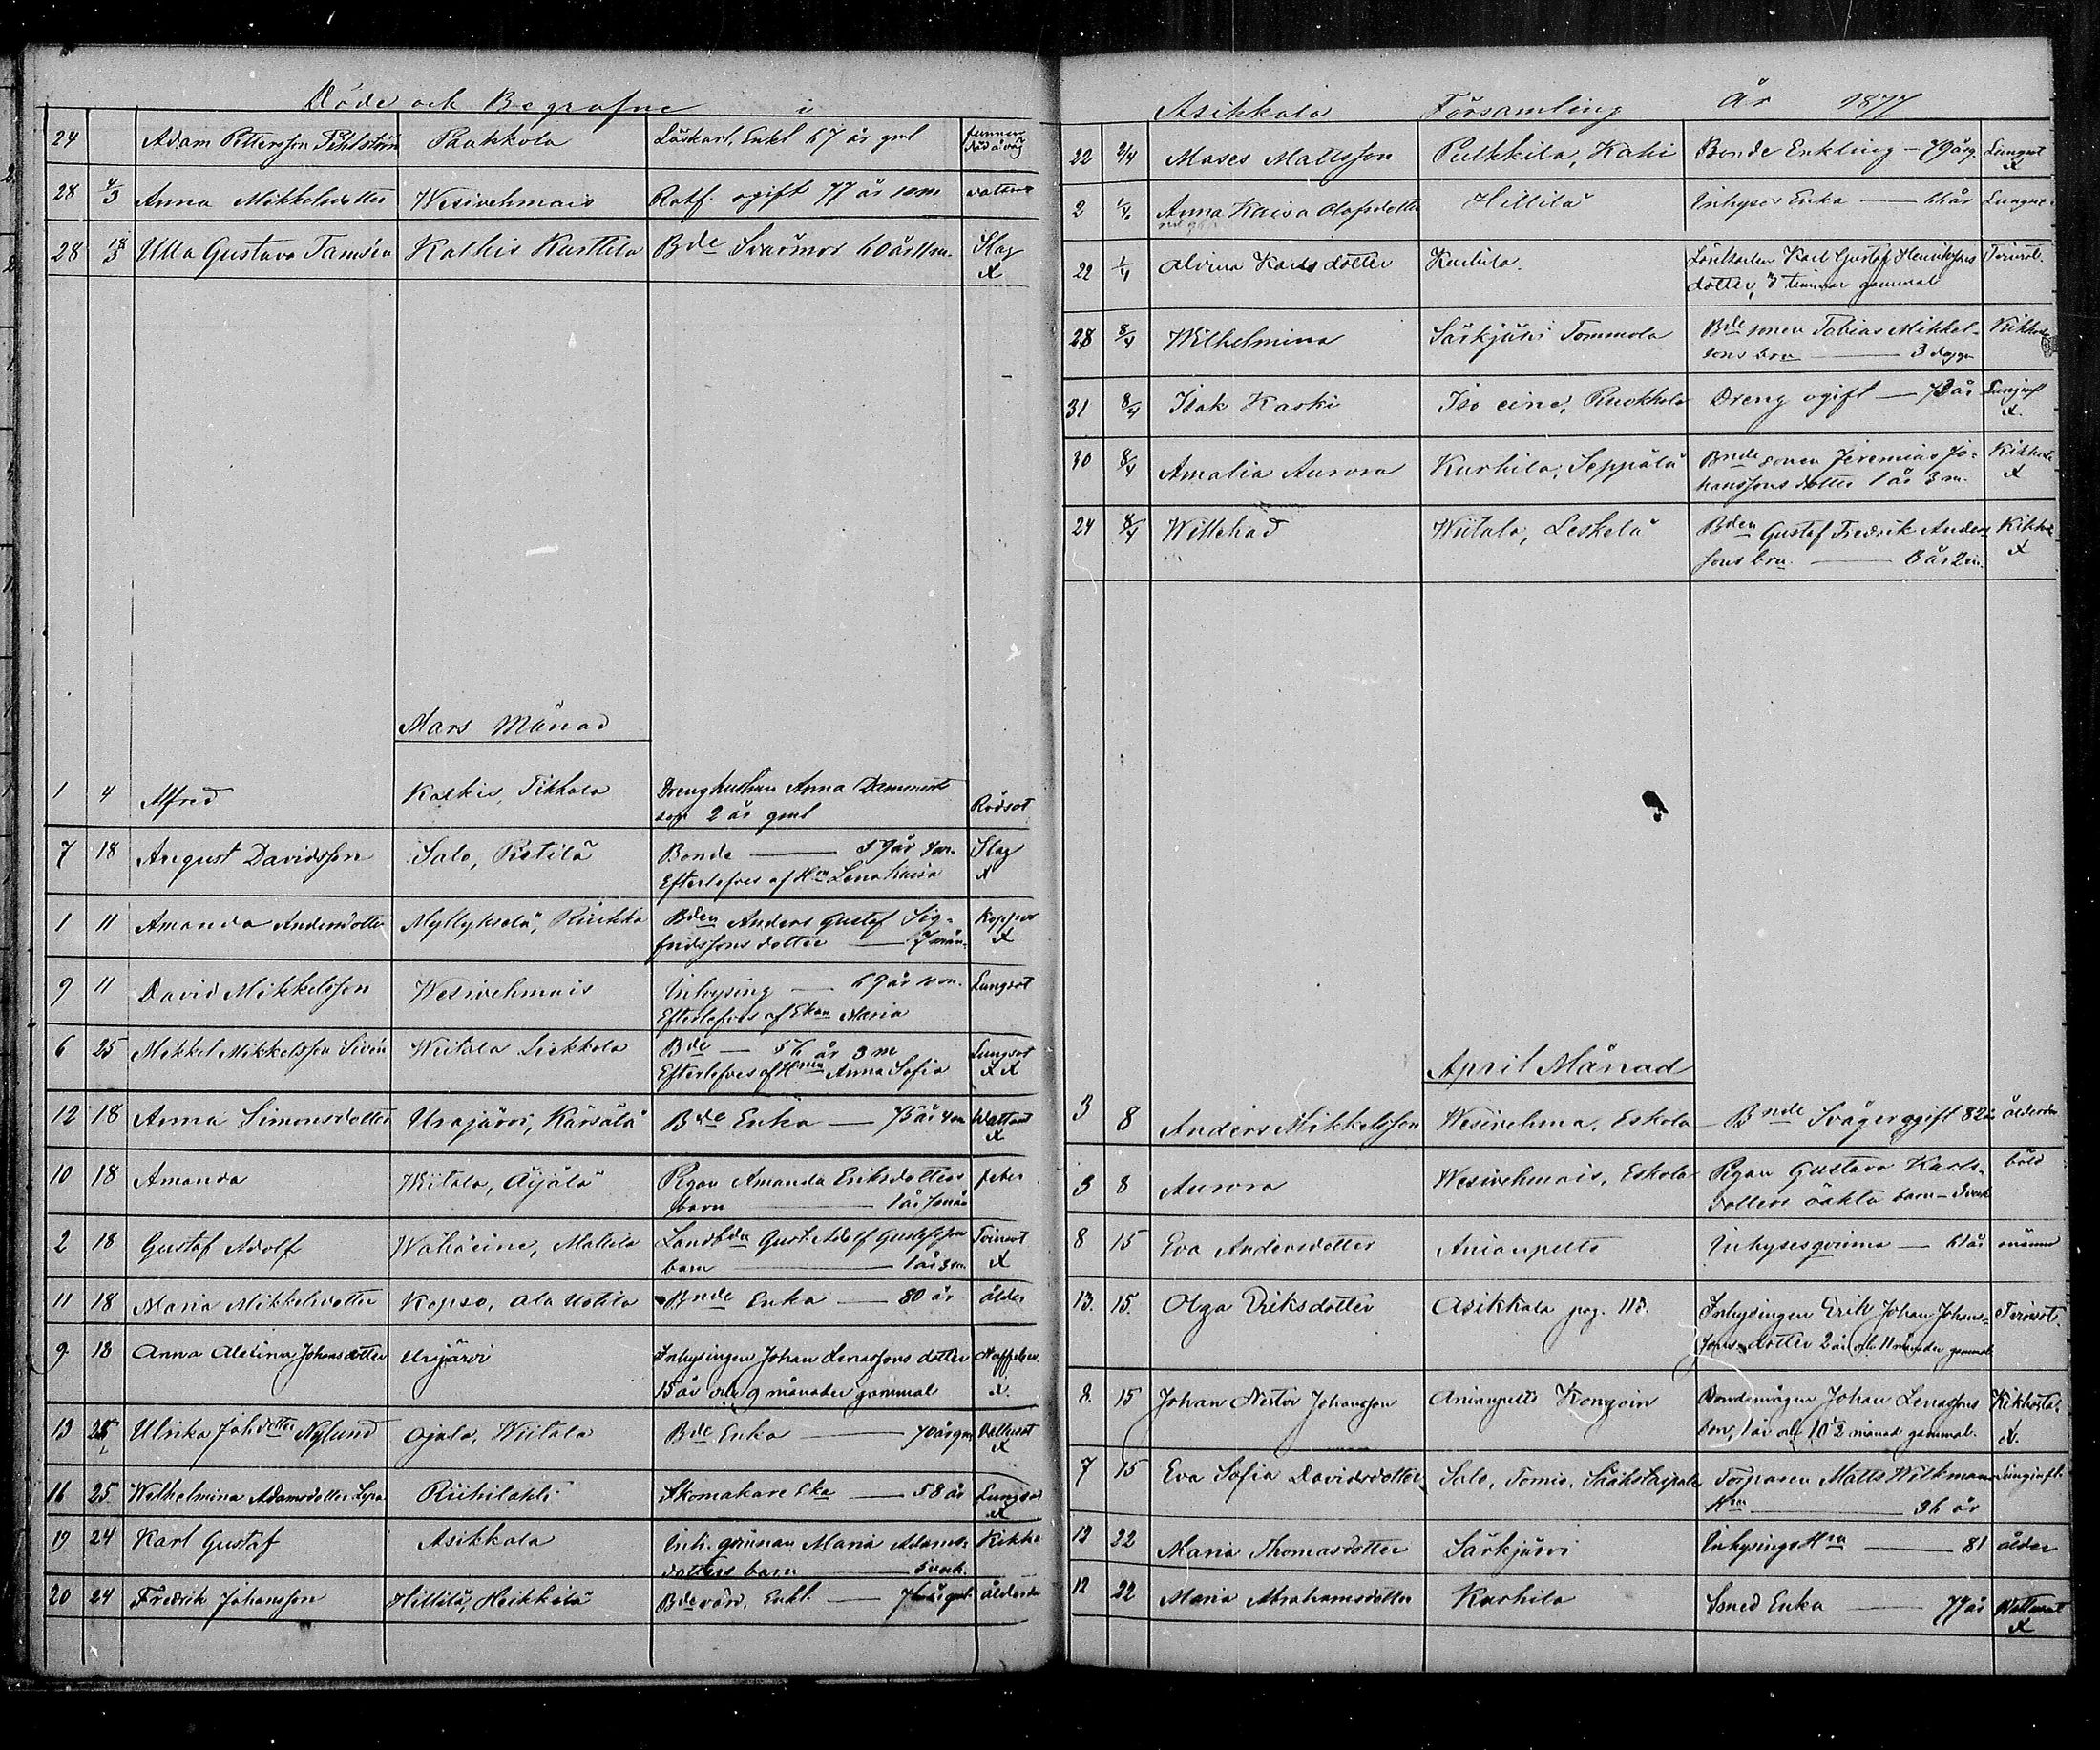 Döde och Begrafne i
24 Adam Pettersson Pihlström Paakkola Löskarl, Enkl 67 år gml funnen död å väg
28 4/3 Anna Mikkelsdotter Wesivehmais Rotf. ogift 77 år 10 m
28 18/3 Ulla Gustava Tamsén Kalkis Kurttila Bde Svärmor 60 år 11 m. Slag
X
Mars Månad
1 4 Alfred Kalkis, Tikkala Drenghustrun Anna
son 2 år gml Rödsot
7 18 August Davidsson Salo, Pietilä Bonde — 59 år 4 m. Slag
Efterlefves af H:n Lena Kaisa X
1 11 Amanda Andersdotter Myllykselä, Riukka Bden Anders Gustaf Sig- Koppor
fridssons dotter — 7 mån. X
9 11 David Mikkelsson Wesivehmais Inhysing — 69 år 10 m. Lungsot
Efterlefves af Ekan Maria
6 25 Mikkel Mikkelsson Sivén Wiitala Liekkola Bde — 56 år 3 m Lungsot
Efterlefves af Hnen Anna Sofia X X
12 18 Anna Simonsdotter Urajärvi, Kärsälä Bde Enka — 75 år 4 m Wattsot
X
10 18 Amanda Wiitala, Äijälä Pigan Amanda Eriksdotters feber
barn — 1 år
2 18 Gustaf Adolf Wähäeine, Mattila Landbdn Gust. Adolf Gustafsson Tvinsot
barn — 1 år 3 m. X
11 18 Maria Mikkelsdotter Kopso, Ala Uotila Bnde Enka — 80 år ålder
9 18 Anna Alexina Johansdotter Urajärvi Inhysingen Johan Lenassons dotter
15 år och 9 månader gammal X.
13 25 Ulrika Johdotter Nylund Ojala, Wiitala Bde Enka — 70 år gm. Vattusot
X
16 25 Wilhelmina Adamsdotter Lyra Riihilahti Skomakare Eka — 58 år Lungsot
X
19 24 Karl Gustaf Asikkala Inh. qvinnan Maria Adams- Kikho
dotters barn — 5 veck.
20 24 Fredrik Johansson Hillilä, Heikkilä Bde Enkl. — 76 år gml. ålderdo
Asikkala Församling År 1877
22 2/4 Moses Mattsson Pulkkila, Kahi Bonde Enkling — 79 år g. Lungsot
X
2 1/4 Anna Kaisa Olofsdotter Hillilä Inhyses Enka — 66 år
22 1/4 Alvina Karlsdotter Kurhila. Löskarlen Karl Gustaf Henrikssons Tvinsot.
dotter, 3 timmar gammal
28 8/4 Wilhelmina Särkijärvi Tommola Bde sonen Tobias Mikkel- Kikhosta
sons brn — 3 dagar
31 8/4 Isak Kaski Iso eine, Ruokkola Dreng ogift — 73 år Lunginfl
X.
30 8/4 Amalia Aurora Kurhila, Seppälä Bnde sonen Jeremias Jo- Kikhost
hanssons dotter 1 år 3 m. X
24 8/4 Willehad Wiitala, Leskelä Bden Gustaf Fredrik Anders- Kikho
sons brn — 3 år 2 m. X
April Månad
3 8 Anders Mikkelsson Wesivehma, Eskola Bnde Svåger ogift 82 år ålderdom
3 8 Aurora Wesivehmais, Eskola Pigan Gustava Karls- böld
dotters oäkta barn — 3 veck
8 15 Eva Andersdotter Anianpelto Inhysesqvinna — 61 år
13. 15. Olga Eriksdotter Asikkala pag. 118. Inhysingen Erik Johan Johans- Tvinsot.
sons dotter 2 år och 11 månader gammal
8. 15 Johan Nestor Johansson Anianpelto Konjoin Bondemågen Johan Lenassons Kikhosta
son, 1 år och 10 1/2 månad gammal. X.
7 15 Eva Sofia Davidsdotter Salo, Tomio, Sääkslaipale Torparen Matts Wilkman Lunginfl.
Hru — 36 år
12 22 Maria Thomasdotter Särkijärvi Inhysings Hru — 81 ålder
12 22 Maria Abrahamsdotter Kurhila Smed Enka — 77 år Wattusot
X